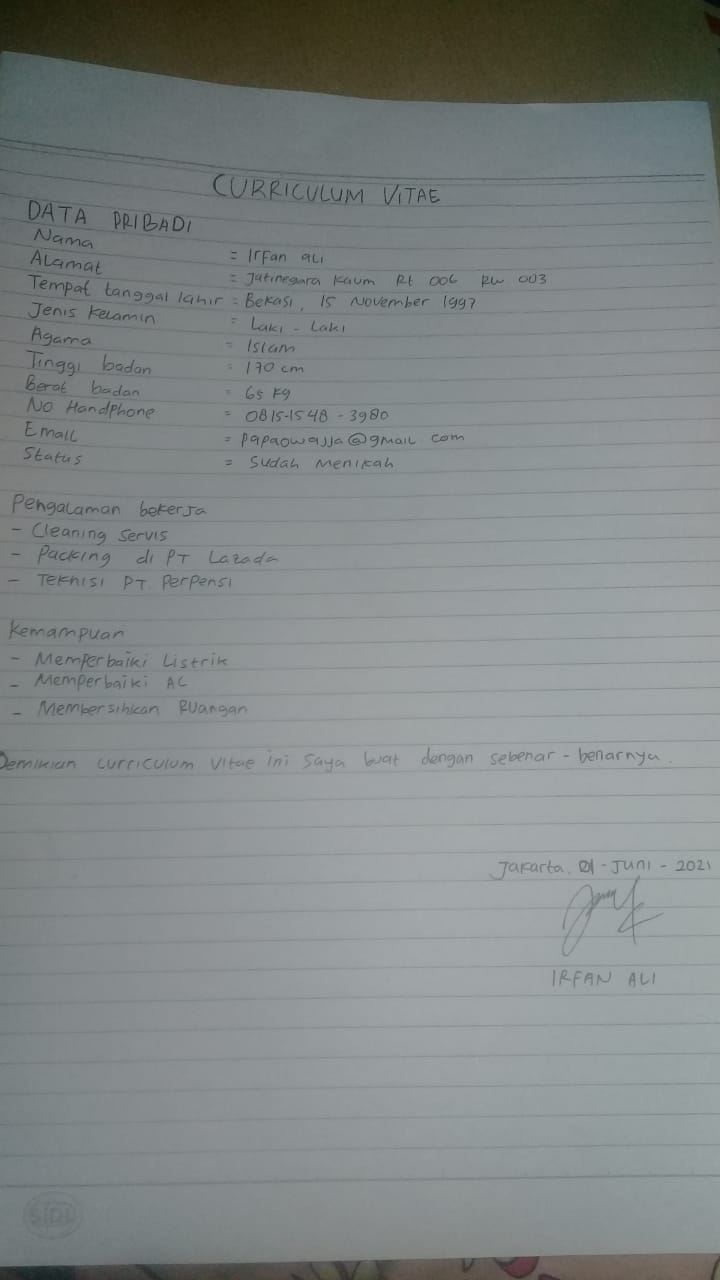 CURRICULUM VITAE
DATA PRIBADI
Nama = Irfan ali
Alamat = Jatinegara kaum Rt 006 Rw 003
Tempat tanggal lahir = Bekasi, 15 November 1997
Jenis Kelamin = Laki - Laki
Agama = Islam
Tinggi badan = 170 cm
Berat badan = 65 Kg
No Handphone = 0815-1548-3980
Email = papaowajja@gmail.com
Status = Sudah Menikah
Pengalaman bekerja
- Cleaning Servis
- Packing di PT Lazada
- Teknisi PT. Perpensi
Kemampuan
- Memperbaiki Listrik
- Memperbaiki AC
- Membersihkan Ruangan
Demikian curriculum vitae ini saya buat dengan sebenar - benarnya.
Jakarta, 01 - Juni - 2021
IRFAN ALI
SIDU